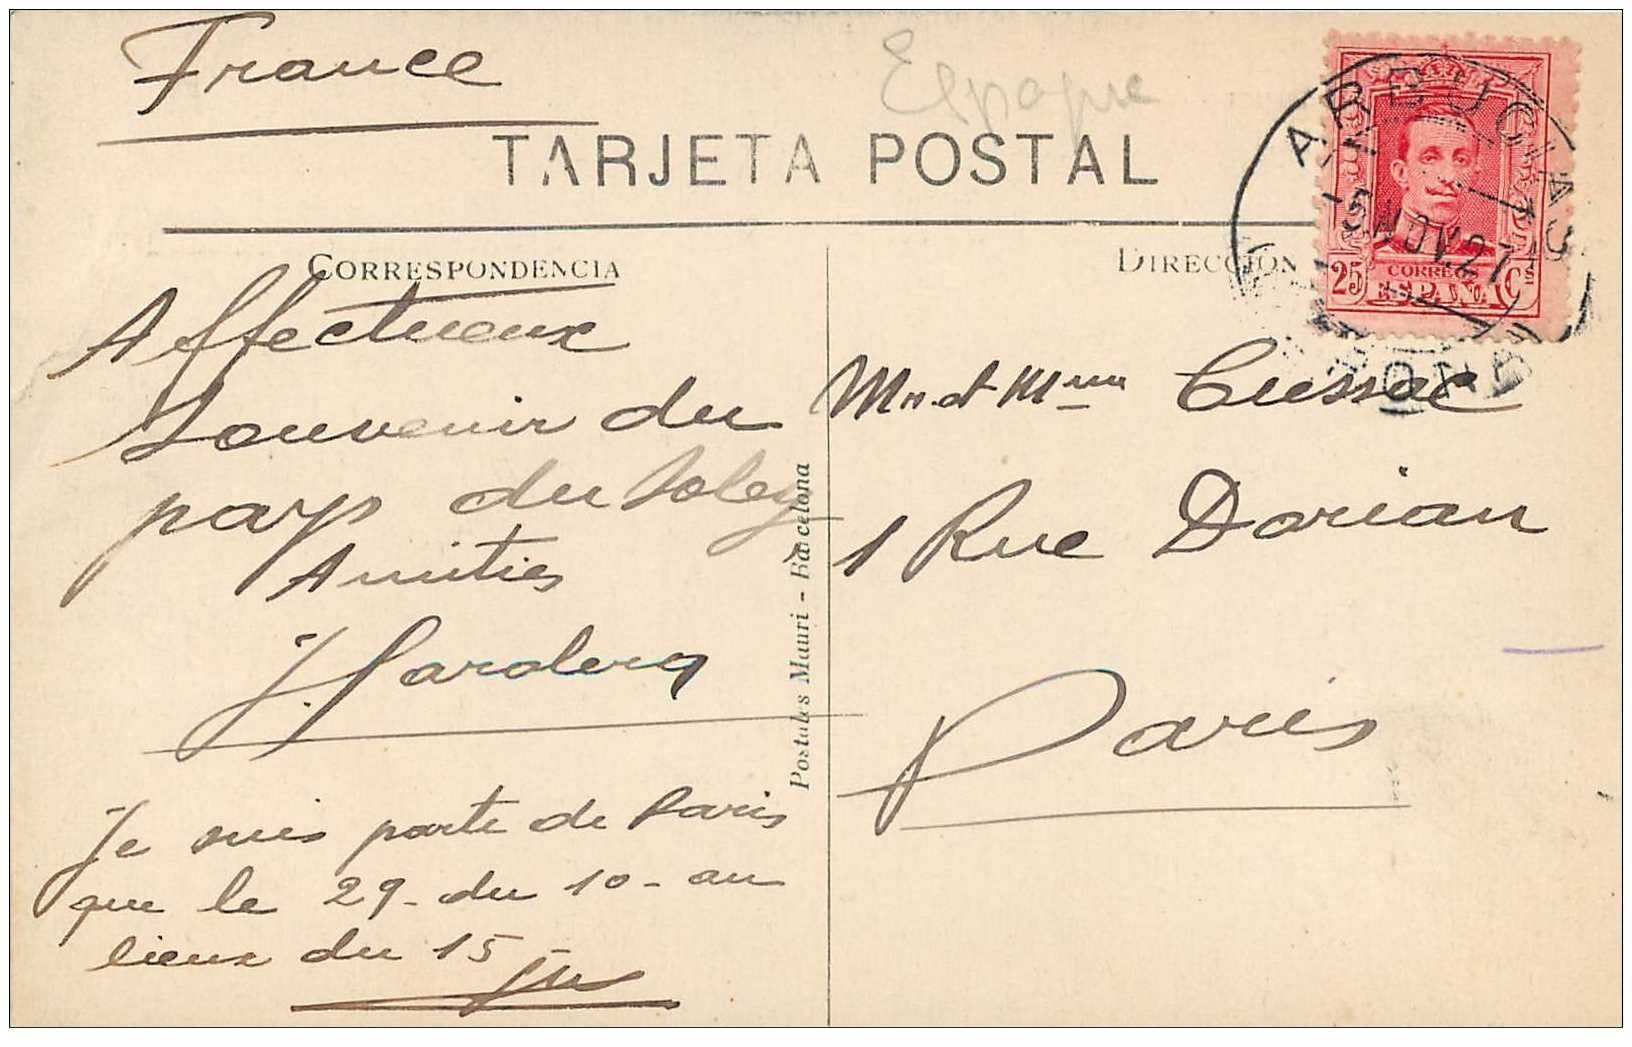 France
Espagne
TARJETA POSTAL
ARBUCIAS
5 NOV. 27
CORREOS
ESPAÑA
25 Cs
CORRESPONDENCIA
DIRECCIÓN
Affectueux
Souvenir du
pays du Soleil
Amitiés
J.
Je suis parti de Paris
que le 29 - du 10 - au
lieux du 15
Postales Mauri - Barcelona
Mr et Mme Cussac
1 Rue Dorian
Paris